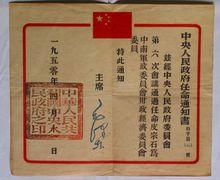 中央人民政府任命通知書
茲經中央人民政府委員會
第六次會議通過任命皮宗石爲
中南軍政委員會財政經濟委員會
委員
特此通知
主席
毛澤東
一九五〇年四月
日
中央人民政府之印